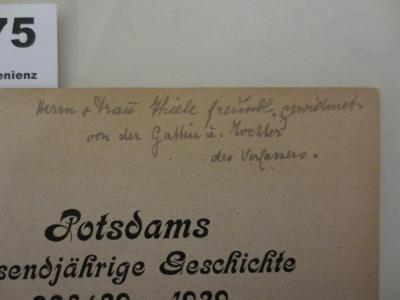 75
enienz
Herrn & Frau Thiele freundl. gewidmet
von der Gattin u. Tochter
des Verfassers.
Potsdams
sendjährige Geschichte
1929